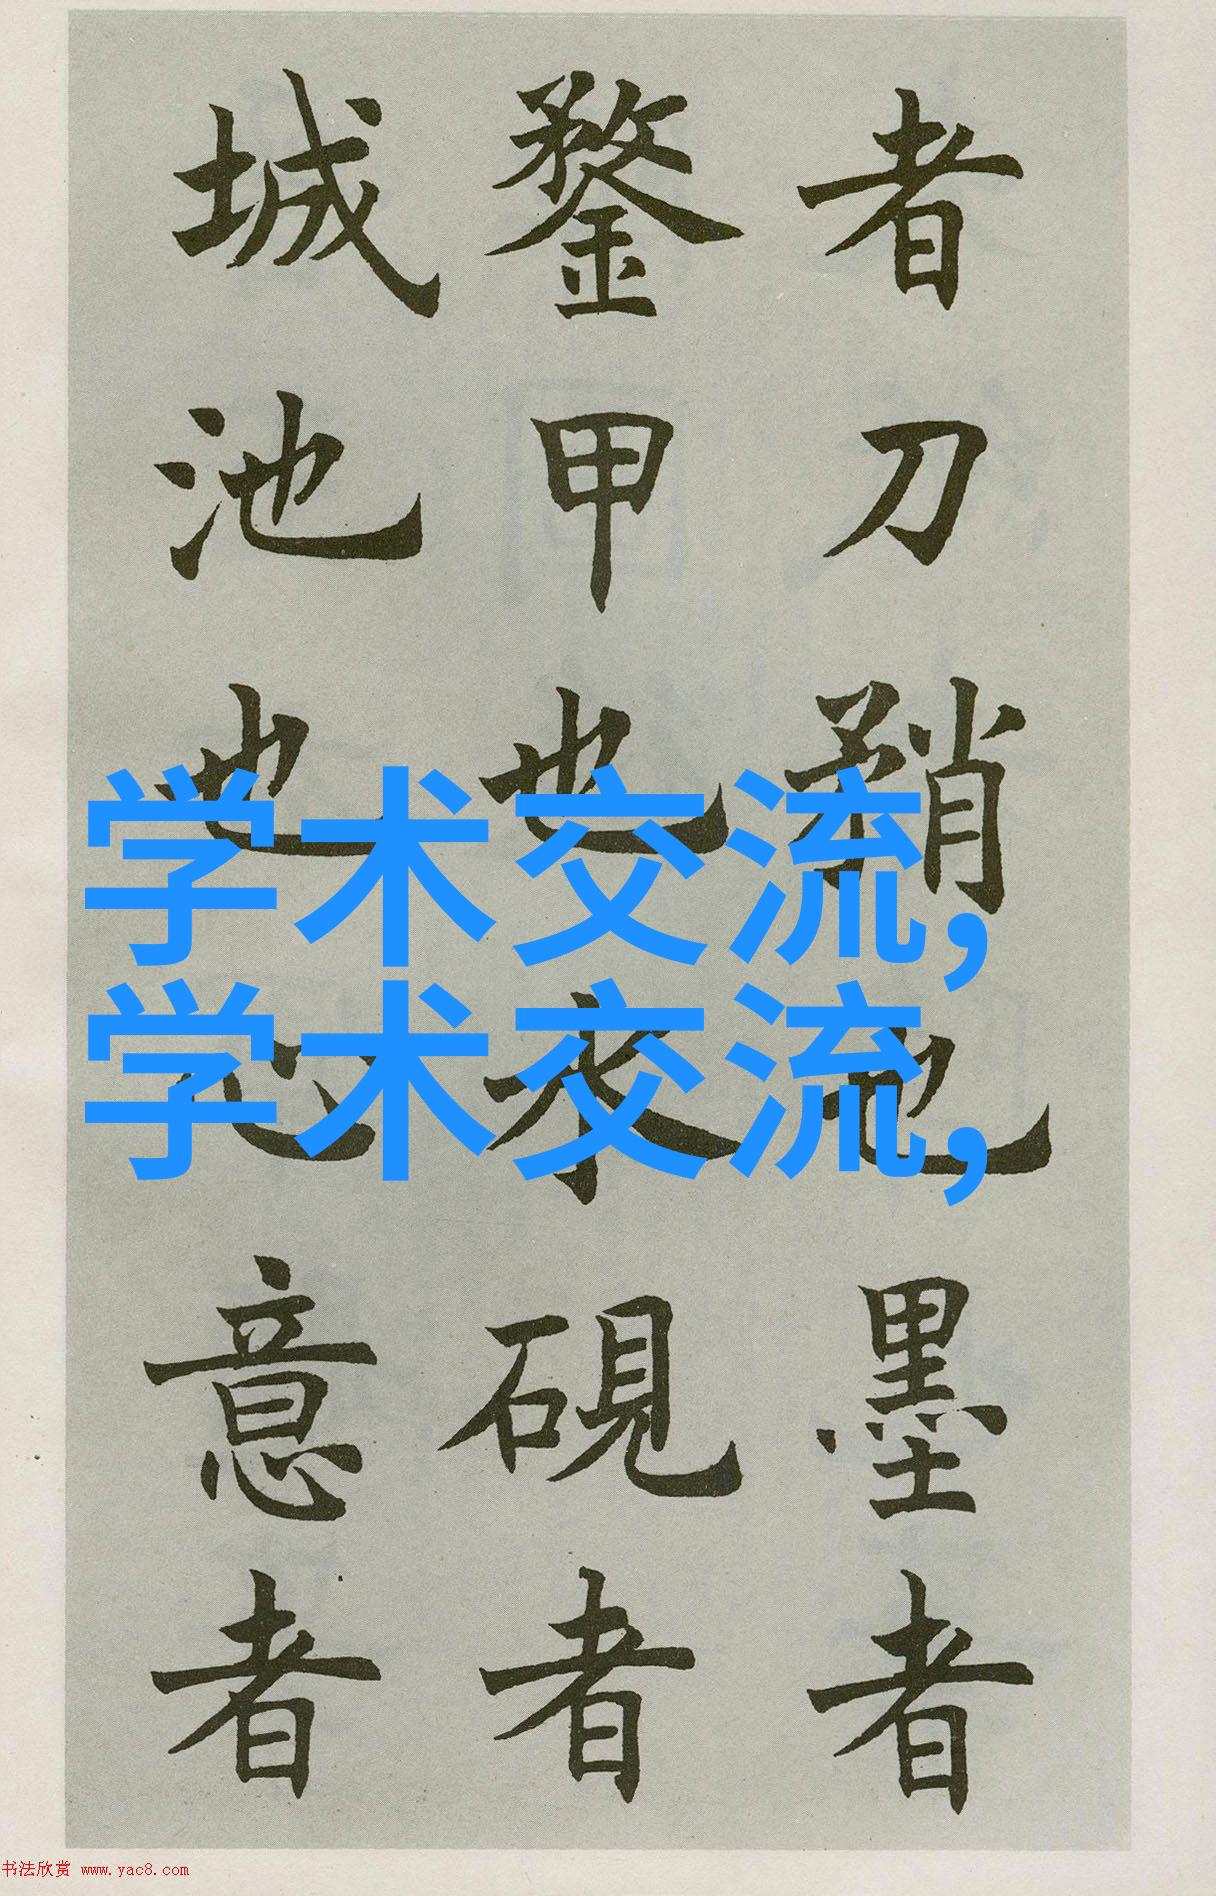 者刀矟也墨者
鍪甲也水硯者
城池也心意者
学术交流,
学术交流,
书法欣赏 www.yac8.com